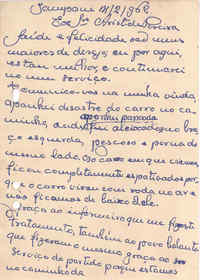 Sampaoni 14/2/1962
Exº Sr Aristides Pereira
Saúde e felicidade são meus
maiores desejos eu por aqui,
estou melhor e continuarei
no meu serviço.
Comunico-vos na minha vinda
apanhei desastre do carro no ca-
minho, apontou pancada no bra-
ço esquerdo, pescoço e perna de
mesmo lado. O carro em que viemos
ficou completamente
que o carro virou com roda no ar e
nós ficamos de baixo dele.
Graças ao enfermeiro que me fez
tratamento, também ao povo balanta
que fizeram o mesmo graças ao
serviço de partido porque estamos
no caminho da